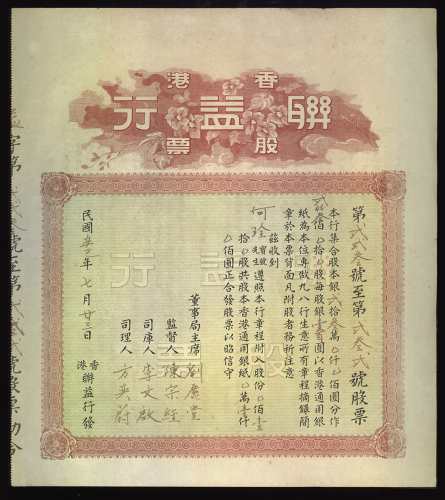 香港
聯益行
股票
第貳弍叁號至第弍叁弍號股票
本行集合股本銀弍拾叁萬〇仟〇佰圓分作
弍仟叁佰〇拾〇股每股銀壹百圓以香港通用銀
紙為本位專做九八行生意所有章程摘錄簡
章於本票背面凡附股者務祈注意
茲收到
何瑤寶號先生遵照本行章程附入股份〇佰壹
拾〇股共股本香港通用銀紙〇萬壹仟
〇佰圓正合發股票以昭信守
董事局主席
監督人陳宗經
司庫人李文啟
司理人方奕蔚
民國年七月廿三日
香港聯益行發